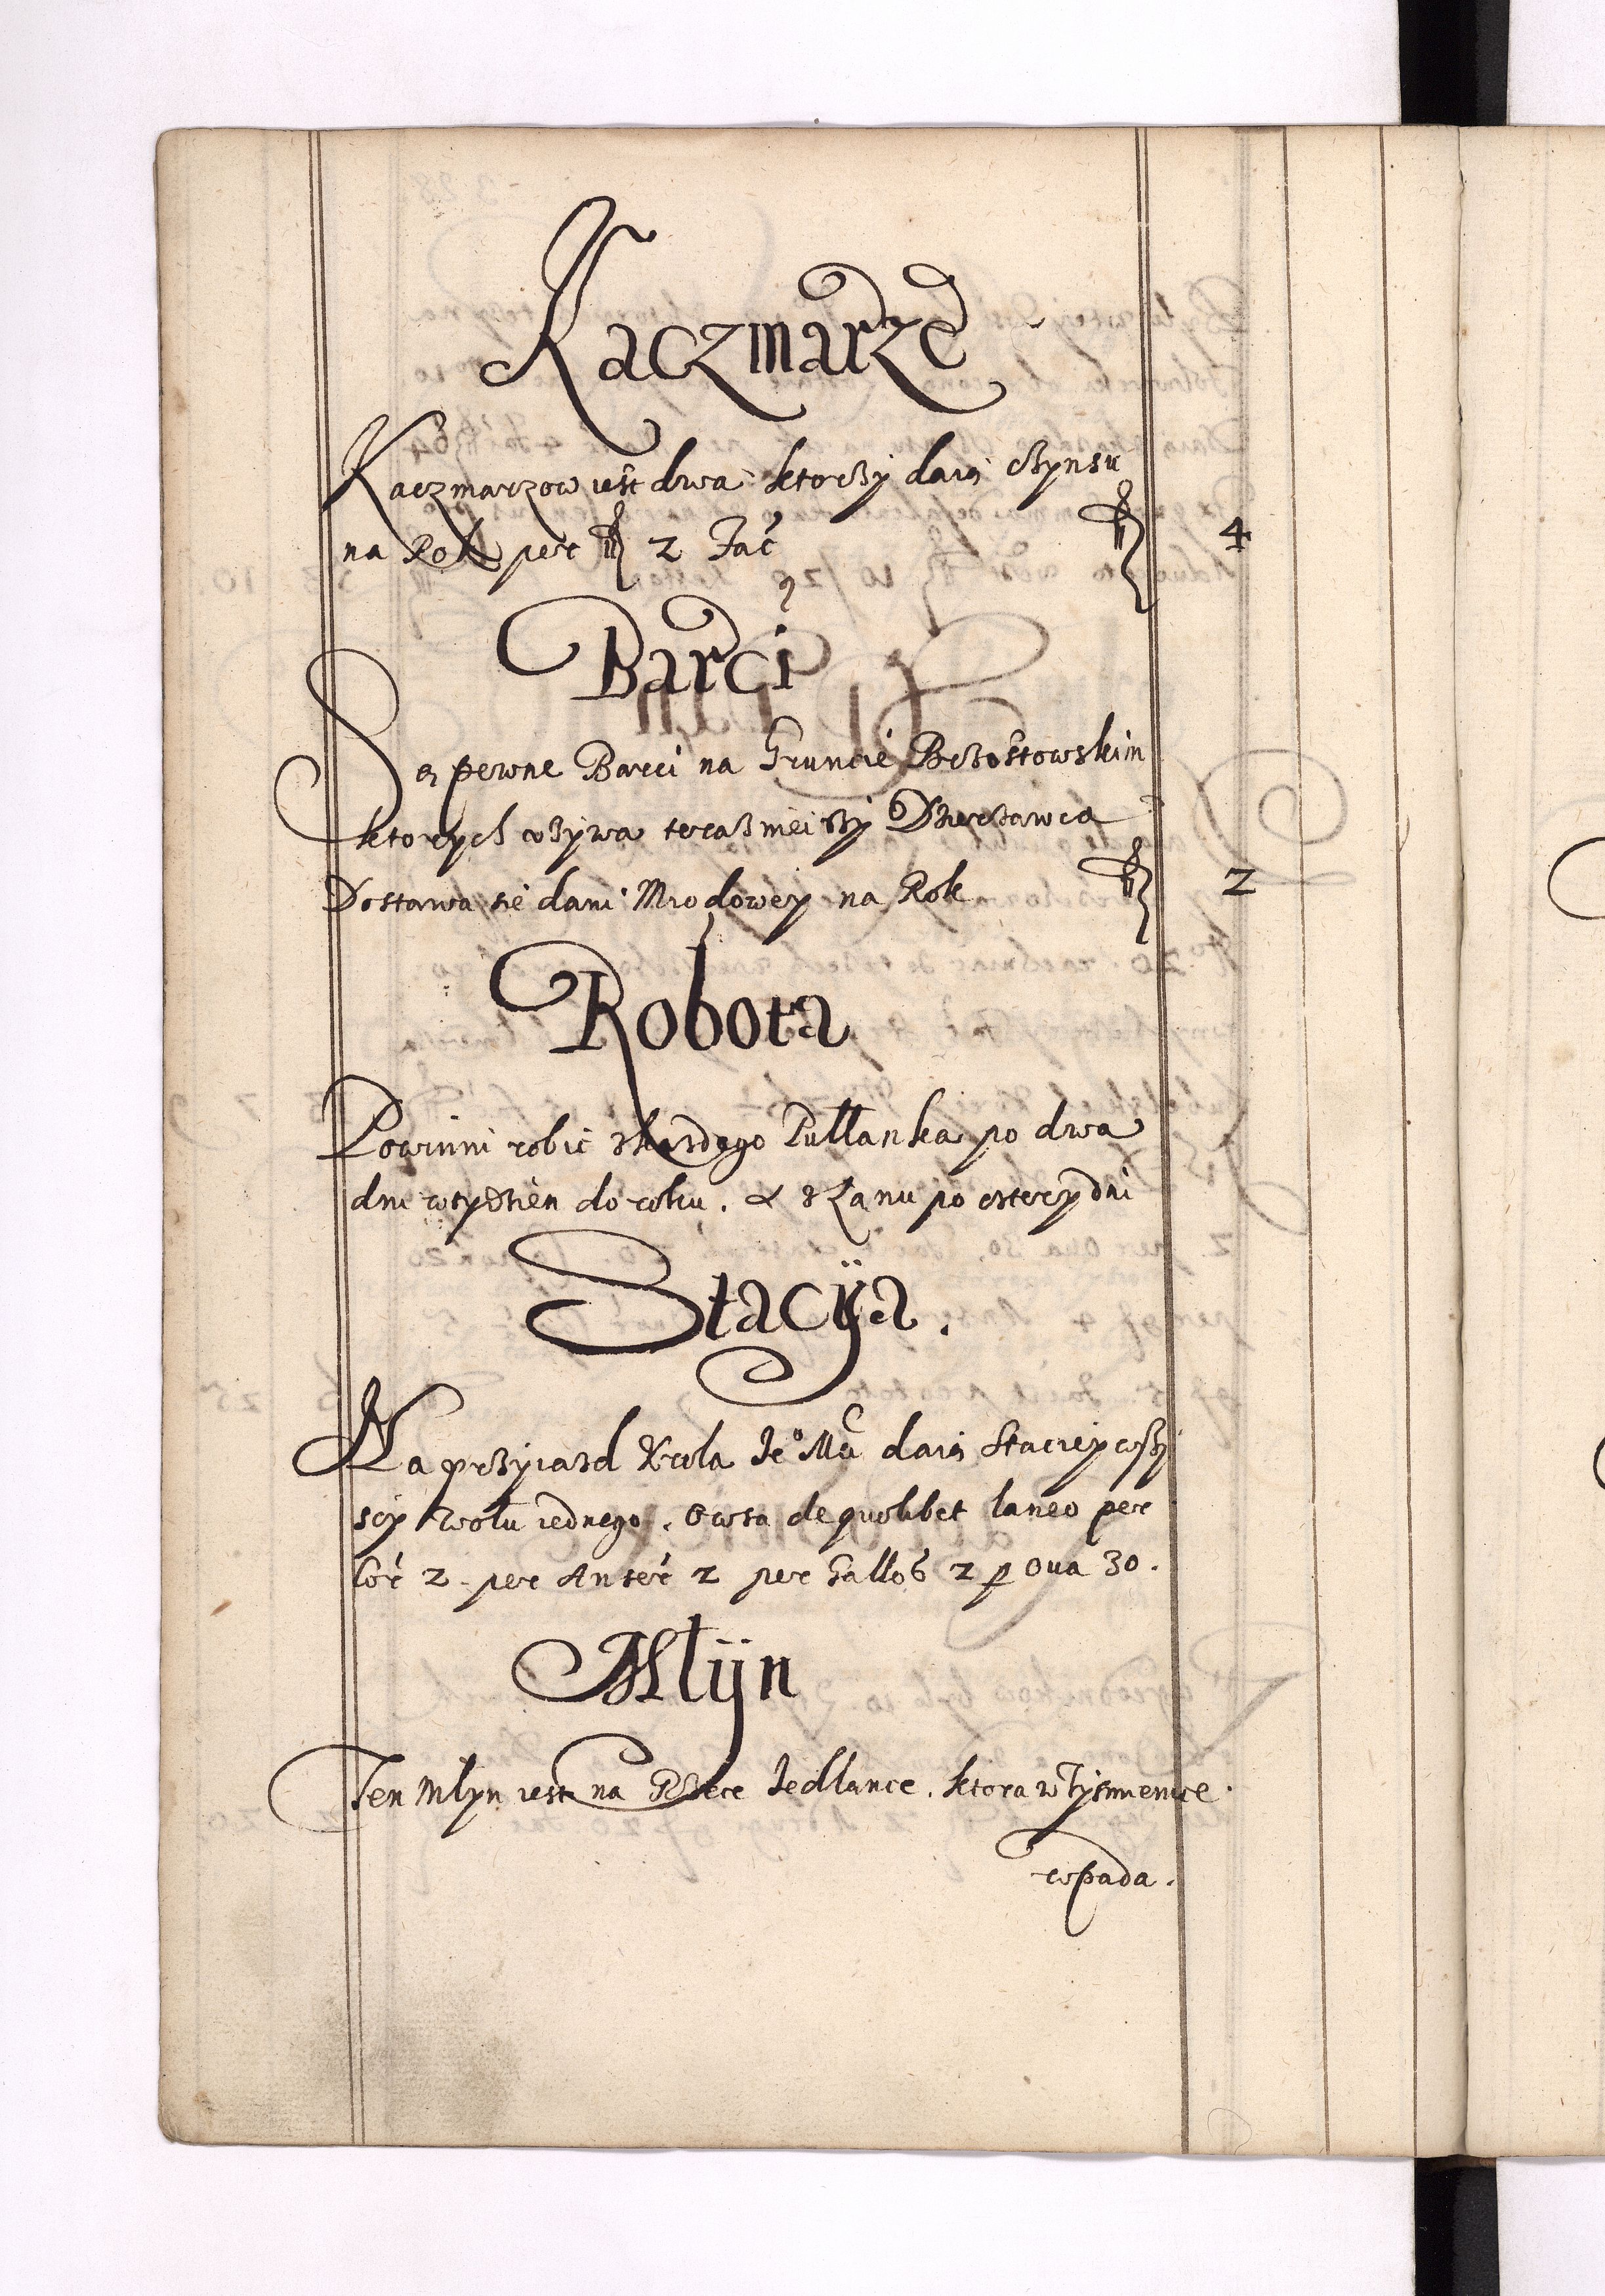 Kaczmarze
Kaczmarzow iest dwa ktorzÿ daią czÿnsu
na Rok per fl 2 Fac̃ fl 4
Barci
Są pewne Barci na Gruncie Bezostowskim
ktorych uzÿwa teraznieiszÿ Dzierzawca
Dostawa sie dani Miodoweÿ na Rok fl 2
Robota
Powinni robic zkazdego Pułłanka po dwa
dni wtÿdzien do roku. A z Łanu po czterÿ dni
Stacÿa.
Na przÿiazd Krola Je° Mc̃i daią Stacieÿ wszÿ
scÿ wołu iednego. Owsa de quolibet laneo per
Cor̃ 2 per Anser̃ 2 per Gallos 2 p Ova 30.
Młÿn
Ten Młÿn iest na Rzece Jedlance. ktora w Tÿsmienice
wpada.